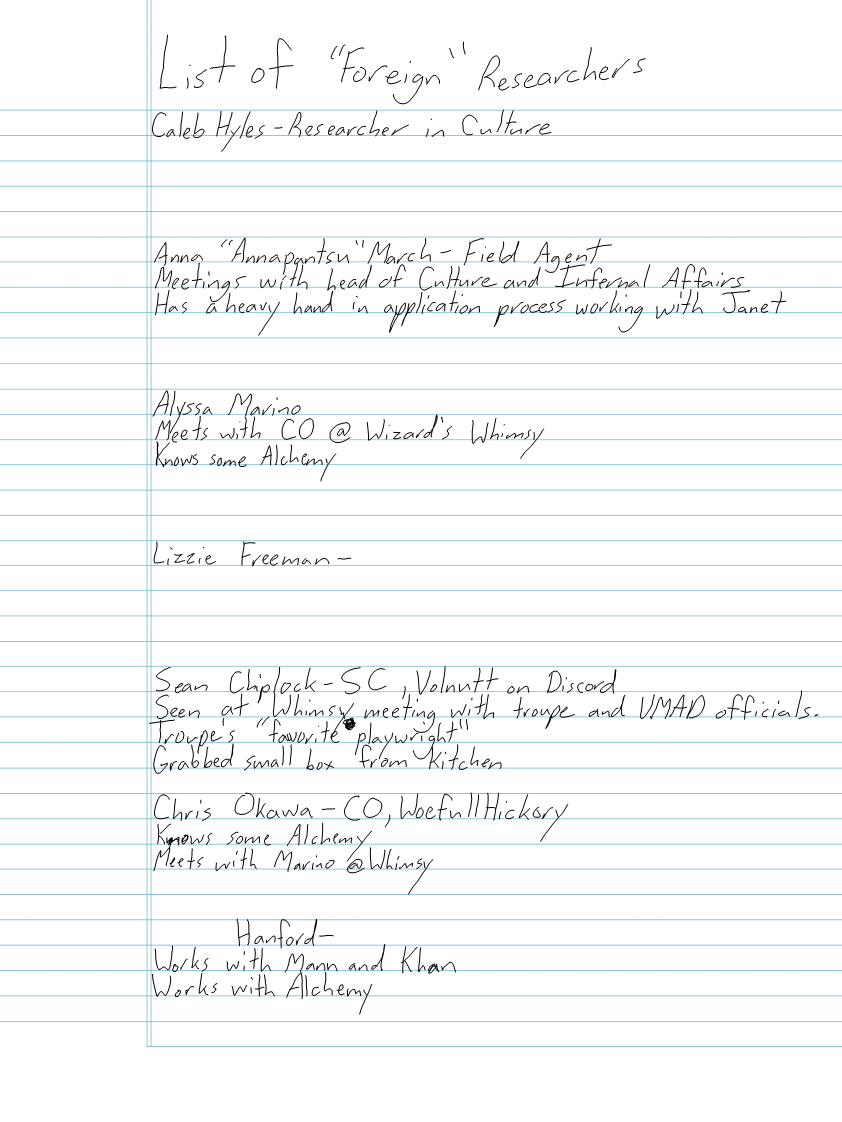 List of "Foreign" Researchers
Caleb Hyles - Researcher in Culture
Anna "Annapantsu" March - Field Agent
Meetings with head of Culture and Internal Affairs
Has a heavy hand in application process working with Janet
Alyssa Marino
Meets with CO @ Wizard's Whimsy
Knows some Alchemy
Lizzie Freeman -
Sean Chiplock - SC, Volnutt on Discord
Seen at Whimsy meeting with troupe and UMAD officials.
Troupe's "favorite playwright"
Grabbed small box from Kitchen
Chris Okawa - CO, WoefullHickory
Knows some Alchemy
Meets with Marino @ Whimsy
Hanford -
Works with Mann and Khan
Works with Alchemy